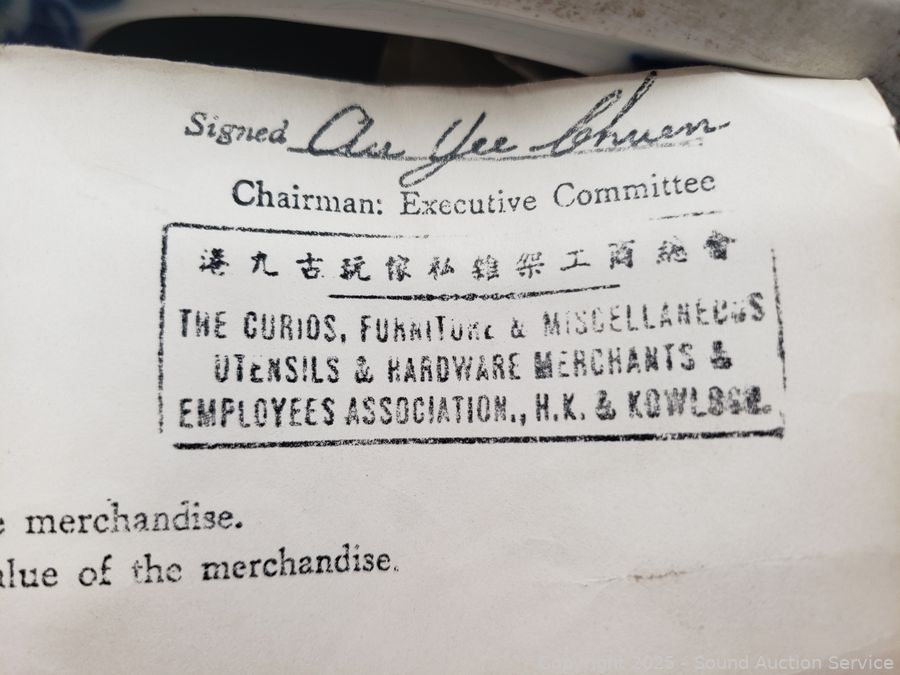 Signed Au Yee Chuen
Chairman: Executive Committee
港九古玩傢私雜架工商總會
THE CURIOS, FURNITURE & MISCELLANEOUS
UTENSILS & HARDWARE MERCHANTS &
EMPLOYEES ASSOCIATION., H.K. & KOWLOON.
merchandise.
of the merchandise.
Copyright 2025 - Sound Auction Service